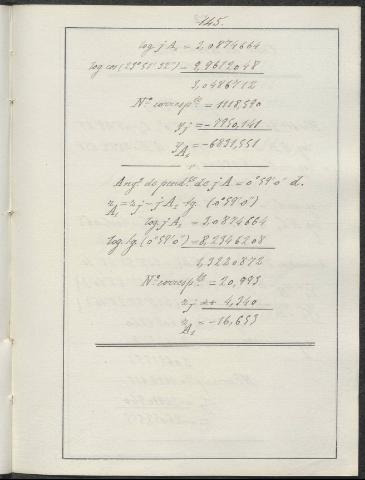 145.
log. j A₁ = 3,0874664
log cos (23° 51' 52") = 9,9612048
3,0486712
Nº correspᵗᵉ = 1118,590
yj = -7950,141
y A₁ = -6831,551
Angº de pendᵗᵉ de j A = 0° 59' 0" d.
z A₁ = zj - j A₁ tg. (0° 59' 0")
log. j A₁ = 3,0874664
log. tg. (0° 59' 0") = 8,2346208
1,3220872
Nº correspᵗᵉ = 20,993
zj = + 4,340
z A₁ = -16,653